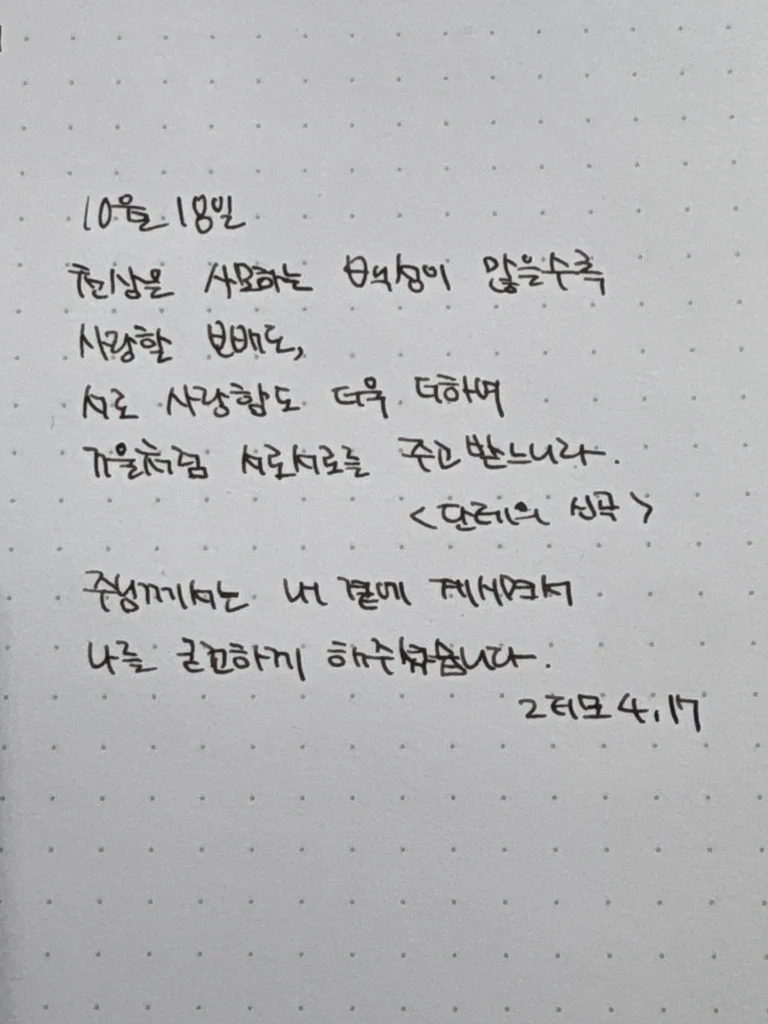 10월 18일
천상을 사모하는 백성이 많을수록
사랑할 보배도,
서로 사랑함도 더욱 더하여
거울처럼 서로서로를 주고 받느니라.
<단테의 신곡>
주님께서는 내 곁에 계시면서
나를 굳건하게 해주셨습니다.
2티모 4,17